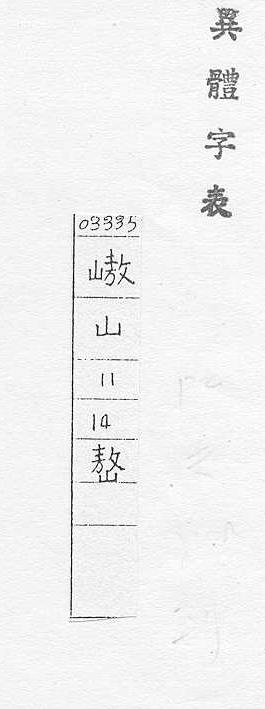 異體字表
03335
嶅
山
11
14
嶅